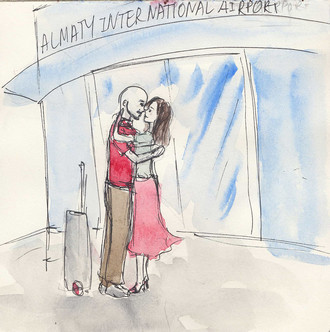 ALMATY INTERNATIONAL AIRPORT